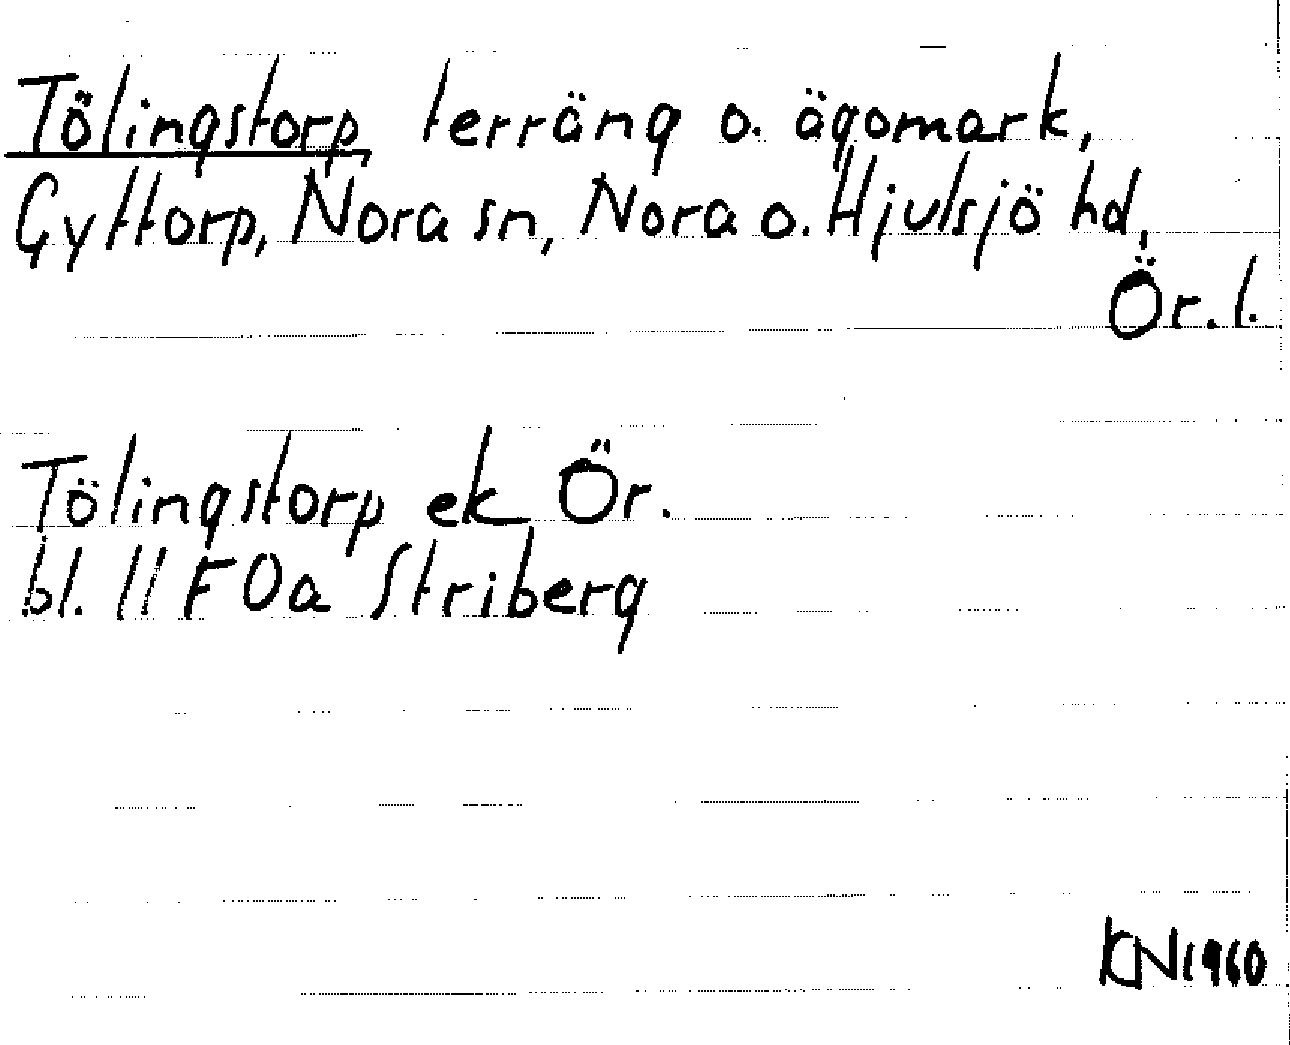 Tölingstorp, terräng o. ägomark,
Gyttorp, Nora sn, Nora o. Hjulsjö hd,
Ör. l.
Tölingstorp ek Ör.
bl. 11 F 0a Striberg
KN 1960